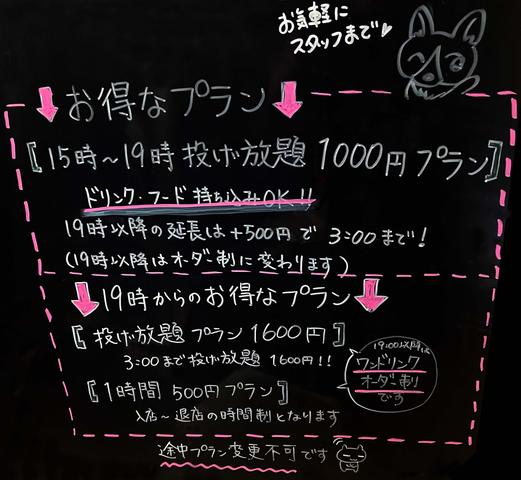 お気軽に
スタッフまで♡
お得なプラン
【15時～19時 投げ放題 1000円 プラン】
ドリンク・フード 持ち込みOK!!
19時以降の延長は+500円で 3:00まで!
(19時以降はオーダー制に変わります)
19時からのお得なプラン
【投げ放題 プラン 1600円】
3:00まで投げ放題 1600円!!
【1時間 500円プラン】
入店～退店の時間制となります
19:00以降は
ワンドリンク
オーダー制
です
途中プラン変更不可です